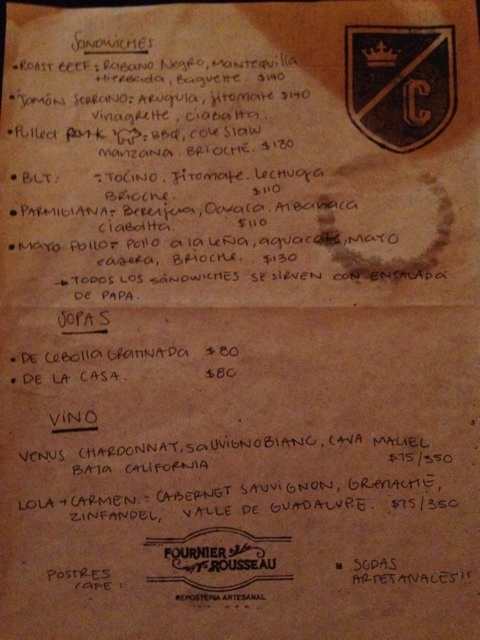 SANDWICHES
• ROAST BEEF: RABANO NEGRO, MANTEQUILLA
HIERBADA, BAGUETTE. $140
• JAMÓN SERRANO: ARUGULA, JITOMATE $140
VINAGRETTE, CIABATTA.
• PULLED PORK: BBQ, COLE SLAW
MANZANA. BRIOCHE. $130
• BLT: TOCINO. JITOMATE. LECHUGA
BRIOCHE. $110
• PARMIGIANA: BERENJENA, OAXACA. ALBAHACA
CIABATTA. $110
• MAYO POLLO: POLLO A LA LEÑA, AGUACATE, MAYO
CASERA, BRIOCHE. $130
→ TODOS LOS SÁNDWICHES SE SIRVEN CON ENSALADA
DE PAPA.
C
SOPAS
• DE CEBOLLA GRATINADA $80
• DE LA CASA. $80
VINO
VENUS CHARDONNAY, SAUVIGNON BLANC, CAVA MACIEL
BAJA CALIFORNIA $75/350
LOLA + CARMEN: CABERNET SAUVIGNON, GRENACHE,
ZINFANDEL, VALLE DE GUADALUPE. $75/350
POSTRES
CAFE:
FOURNIER
ROUSSEAU
REPOSTERIA ARTESANAL
▪ SODAS
ARTESANALES!!